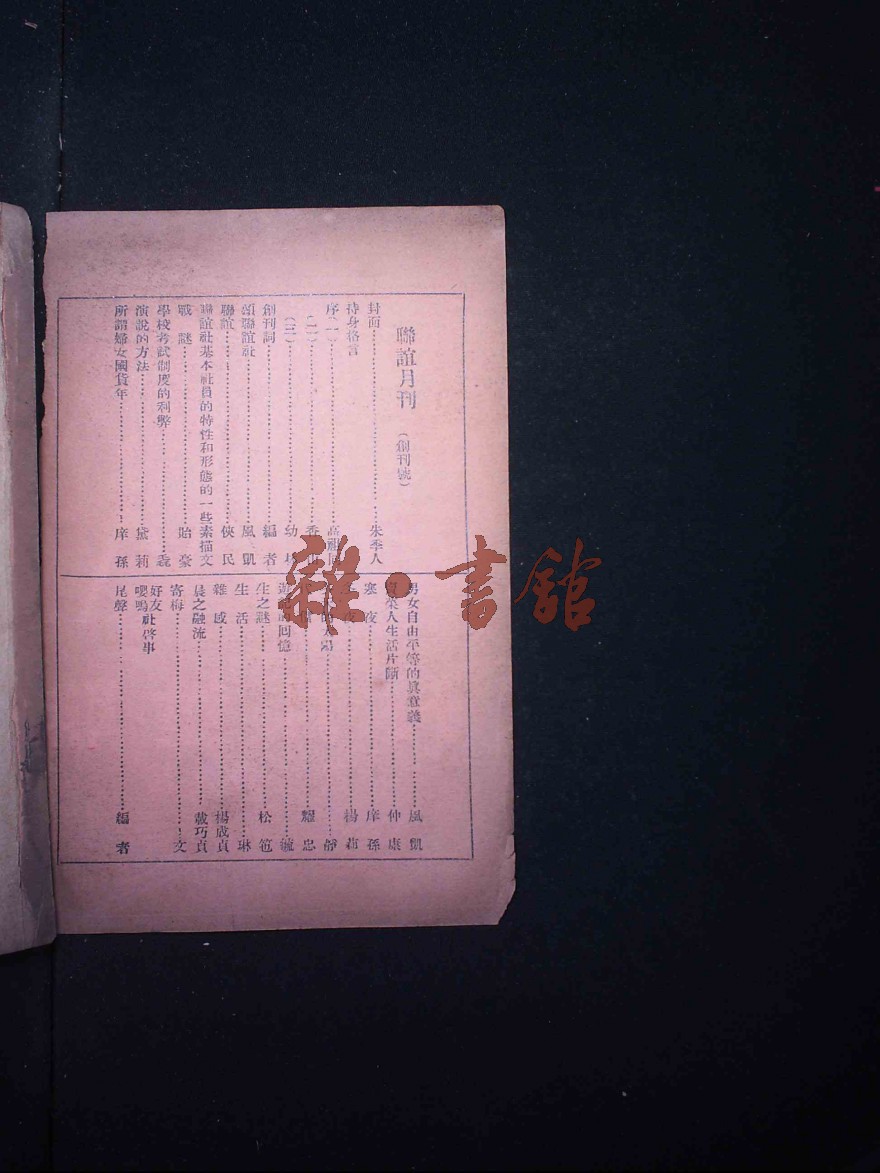 聯誼月刊（創刊號）
封面 朱季人
待身格言
序（一）
（二）
（三） 幼
創刊詞 編者
頌聯誼社 風凱
聯誼 俠民
聯誼社基本社員的特性和形態的一些素描 文
戰謎 貽豪
學校考試制度的利弊
演說的方法 黛莉
所謂婦女國貨年 庠孫
男女自由平等的眞意義 風凱
人生活片斷 仲康
寒夜 庠孫
楊
陽 靜
耀忠
的回憶
生之謎 松
生活 琳
雜感 楊成貞
晨之融流 戴巧貞
寄梅 文
好友
嚶鳴社啓事
尾聲 編者
雜·書館